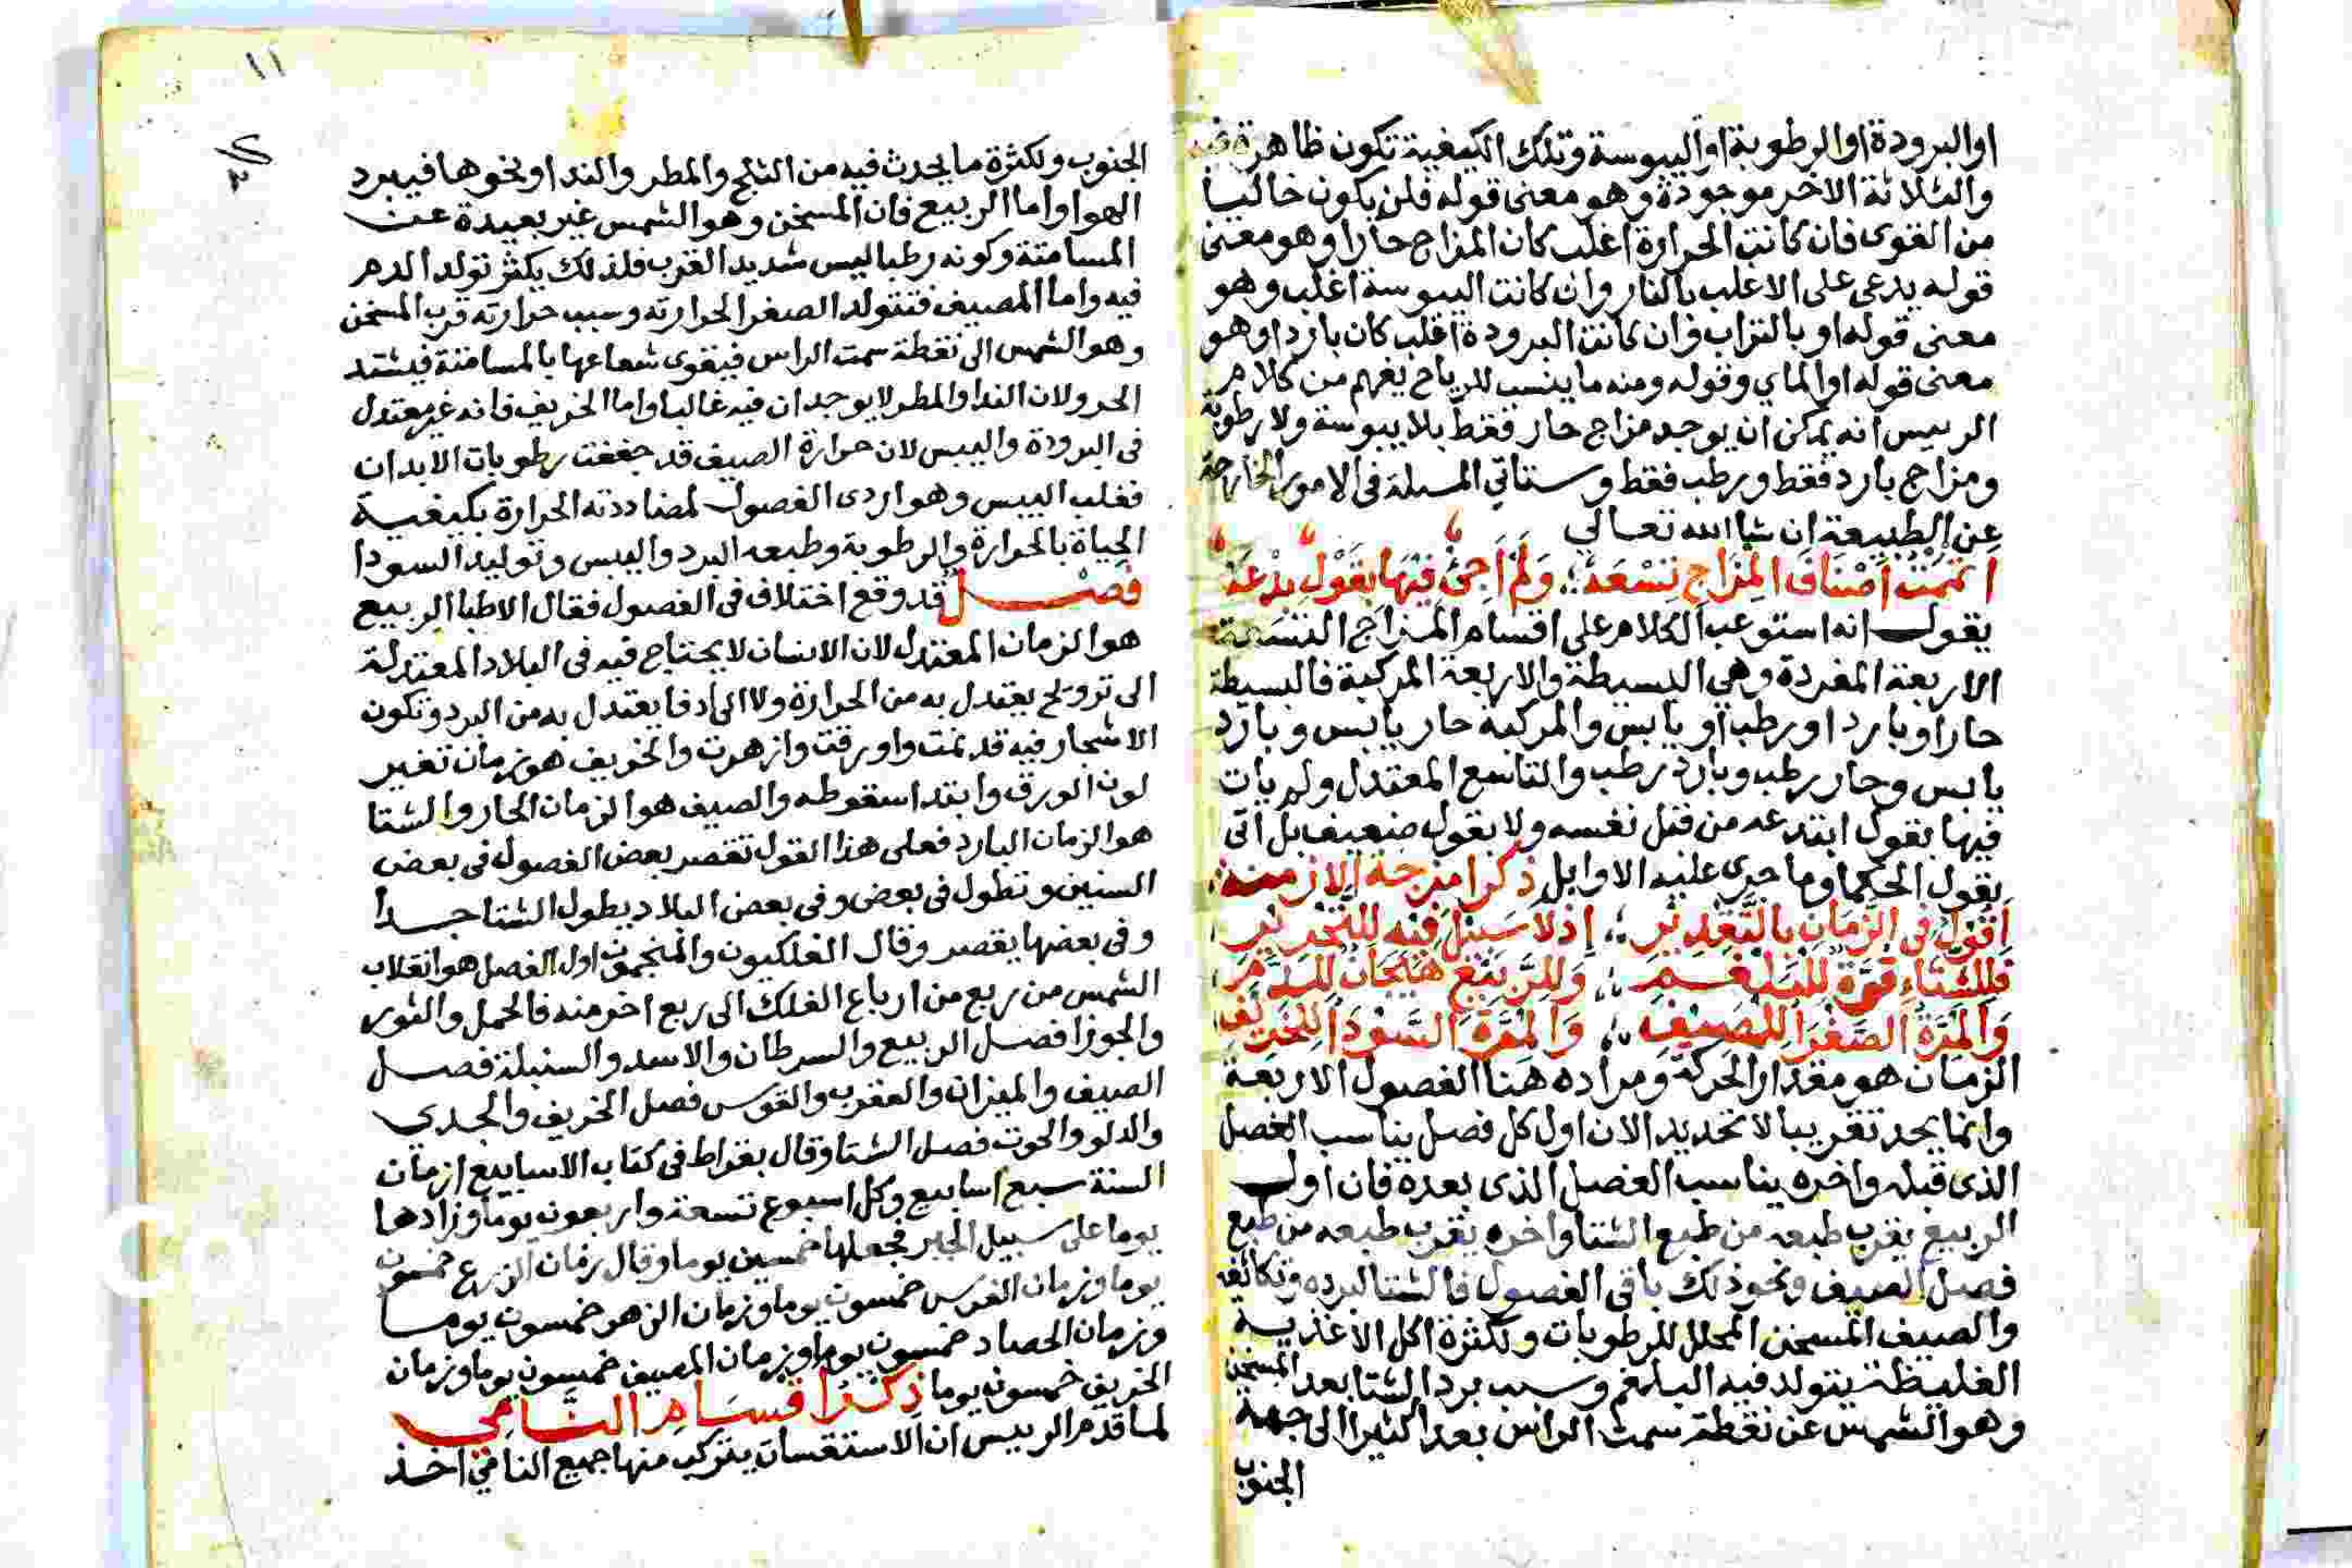 او البرودة او الرطوبة او اليبوسة وتلك الكيفية تكون ظاهرة فيه
والثلاثة الاخر موجودة وهو معنى قوله فلن يكون خاليا
من القوى فان كانت الحرارة اغلب كان المزاج حارا وهو معنى
قوله يدعى على الاغلب بالنار وان كانت اليبوسة اغلب وهو
معنى قوله او بالتراب وان كانت البرودة اغلب كان باردا وهو
معنى قوله او الماي وقوله ومنه ما ينسب للرياح يفهم من كلام
الرييس انه يمكن ان يوجد مزاج حار فقط بلا يبوسة ولا رطوبة
ومزاج بارد فقط ورطب فقط وستاتي المسلة في الامور الخارجة
عن الطبيعة ان شا الله تعالي
اتممت اصناف المزاج تسعه ولم اجئ فيها بقول بدعه
يقول انه استوعب الكلام على اقسام المزاج التسعة
الاربعة المفردة وهي البسيطة والاربعة المركبة فالبسيطة
حار او بارد او رطب او يابس والمركبة حار يابس وبارد
يابس وحار رطب وبارد رطب والتاسع المعتدل ولم يات
فيها بقول ابتدعه من قبل نفسه ولا بقول ضعيف بل اتى
بقول الحكما وما جرى عليه الاوايل ذكر امزجة الازمنة
اقول في الزمان بالتقدير اذ لا سبيل فيه للتحرير
فللشتاء قوة للبلغم وللربيع هيجان للدم
والمرة الصفرا للمصيف والمرة السودا للخريف
الزمان هو مقدار الحركة ومراده هنا الفصول الاربعة
وانما يحد تقريبا لا تحديد الان اول كل فصل يناسب الفصل
الذى قبله واخره يناسب الفصل الذى بعده فان اول
الربيع يقرب طبعه من طبع الشتا واخره يقرب طبعه من طبع
فصل الصيف ونحو ذلك باقى الفصول فالشتا لبرده وتكاثفه
والصيف المسخن المحلل للرطوبات ولكثرة اكل الاغذية
الغليظة يتولد فيه البلغم وسبب برد الشتا بعد المسخن
وهو الشمس عن نقطة سمت الراس بعدا كثيرا الى جهة
الجنوب
١١
الجنوب ولكثرة ما يحدث فيه من الثلج والمطر والندا ونحوها فيبرد
الهوا واما الربيع فان المسخن وهو الشمس غير بعيدة عن
المسامتة وكونه رطبا ليس شديد القرب فلذلك يكثر تولد الدم
فيه واما المصيف فتتولد الصفرا لحرارته وسبب حرارته قرب المسخن
وهو الشمس الى نقطة سمت الراس فيقوى شعاعها بالمسامتة فيشتد
الحر ولان الندا والمطر لا يوجدان فيه غالبا واما الخريف فانه غير معتدل
فى البرودة واليبس لان حرارة الصيف قد جففت رطوبات الابدان
فغلب اليبس وهو اردى الفصول لمضاددته الحرارة بكيفية
الحياة بالحرارة والرطوبة وطبعه البرد واليبس وتوليد السودا
فصل قد وقع اختلاف فى الفصول فقال الاطبا الربيع
هو الزمان المعتدل لان الانسان لا يحتاج فيه فى البلاد المعتدلة
الى ترويح يعتدل به من الحرارة ولا الى ادفا يعتدل به من البرد وتكون
الاشجار فيه قد نمت واورقت وازهرت والخريف هو زمان تغير
لون الورق وابتدا سقوطه والصيف هو الزمان الحار والشتا
هو الزمان البارد فعلى هذا القول تقصر بعض الفصول فى بعض
السنين وتطول فى بعض وفى بعض البلاد يطول الشتا جدا
وفى بعضها يقصر وقال الفلكيون والمنجمون اول الفصل هو انقلاب
الشمس من ربع من ارباع الفلك الى ربع اخر منه فالحمل والثور
والجوزا فصل الربيع والسرطان والاسد والسنبلة فصل
الصيف والميزان والعقرب والقوس فصل الخريف والجدي
والدلو والحوت فصل الشتا وقال بقراط فى كتاب الاسابيع ازمان
السنة سبع اسابيع وكل اسبوع تسعة واربعون يوما وزادها
يوما على سبيل الجبر فجعلها خمسين يوما وقال زمان الزرع خمسون
يوما وزمان الغرس خمسون يوما وزمان الزهر خمسون يوما
وزمان الحصاد خمسون يوما وزمان المصيف خمسون يوما وزمان
الخريف خمسون يوما ذكر اقسام النامي
لما قدم الرييس ان الاستقسات يتركب منها جميع النامي اخذ